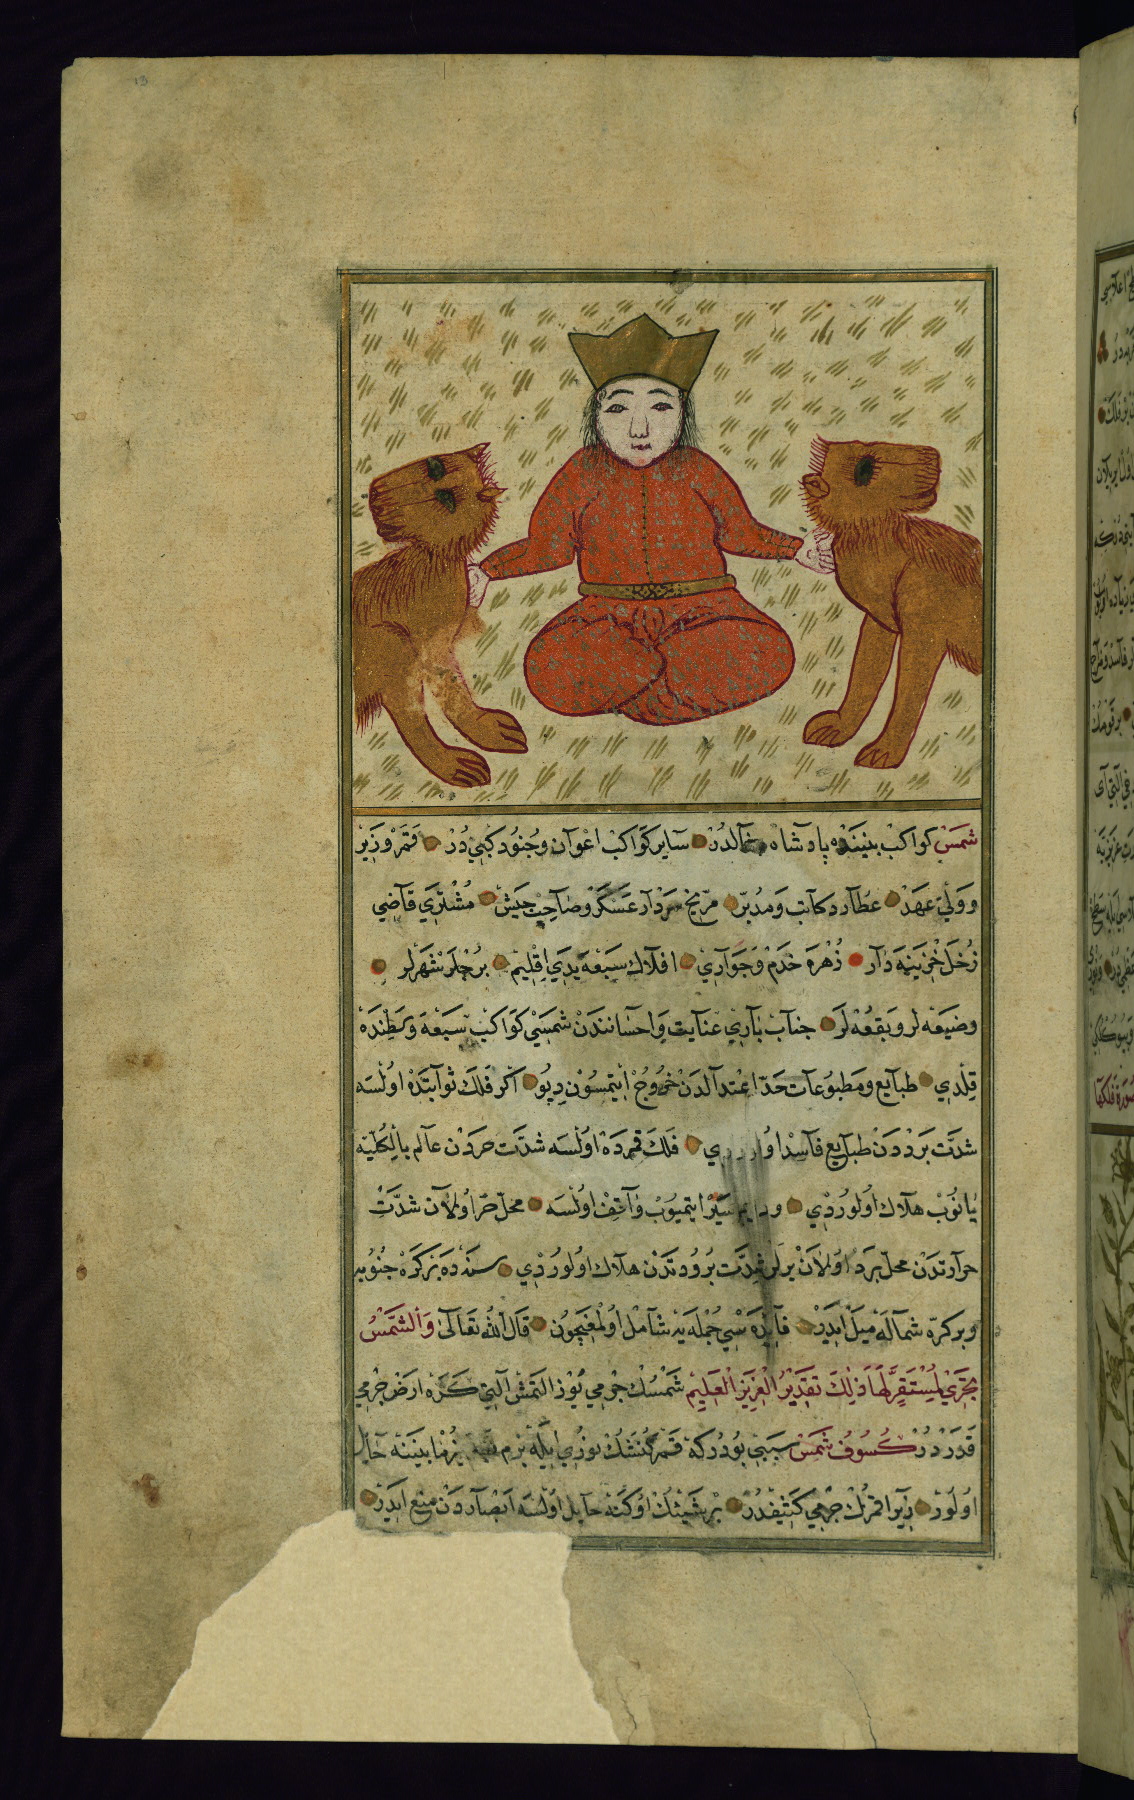 شمس كواكب بيننده پادشاه مثالدر سایر كواكب اعوان و جنود كبی در قمر وزیر
و ولی عهد عطارد كاتب و مدبّر مرّیخ سردار عسكر و صاحب جیش مشتری قاضی
زحل خزینه دار زهره خدم و جواری افلاك سبعه یدی اقلیم برجلر شهرلر
وضیعه لر و بقعه لر جناب باری عنایت و احسانندن شمسی كواكب سبعه وسطنده
قلدی طبایع و مطبوعات حدّ اعتدالدن خروج ایتمسون دیو اكر فلك ثوابتده اولسه
شدّت برددن طبایع فاسد اولوردی فلك قمرده اولسه شدّت حردن عالم بالكلیه
یانوب هلاك اولوردی و دایم سیر ایتمیوب واقف اولسه محلّ حرّ اولان شدّت
حرارتدن محلّ برد اولان یرلر شدّت برودتدن هلاك اولوردی سنه ده بر كره جنوبه
و بر كرّه شماله میل ایدر فایده سی جمله یه شامل اولمغیچون قال الله تعالی والشمس
تجری لمستقرّ لها ذلك تقدیر العزیز العلیم شمسك جرمی یوز التمش التی كره ارض جرمی
قدردر كسوف شمس سببی بودر كه قمر كنشك یوزی ایله بزم یوزمز بیننه حایل
اولور زیرا قمرك جرمی كثیفدر بر شیئك اوكنه حایل اولسه ابصاردن منع ایدر